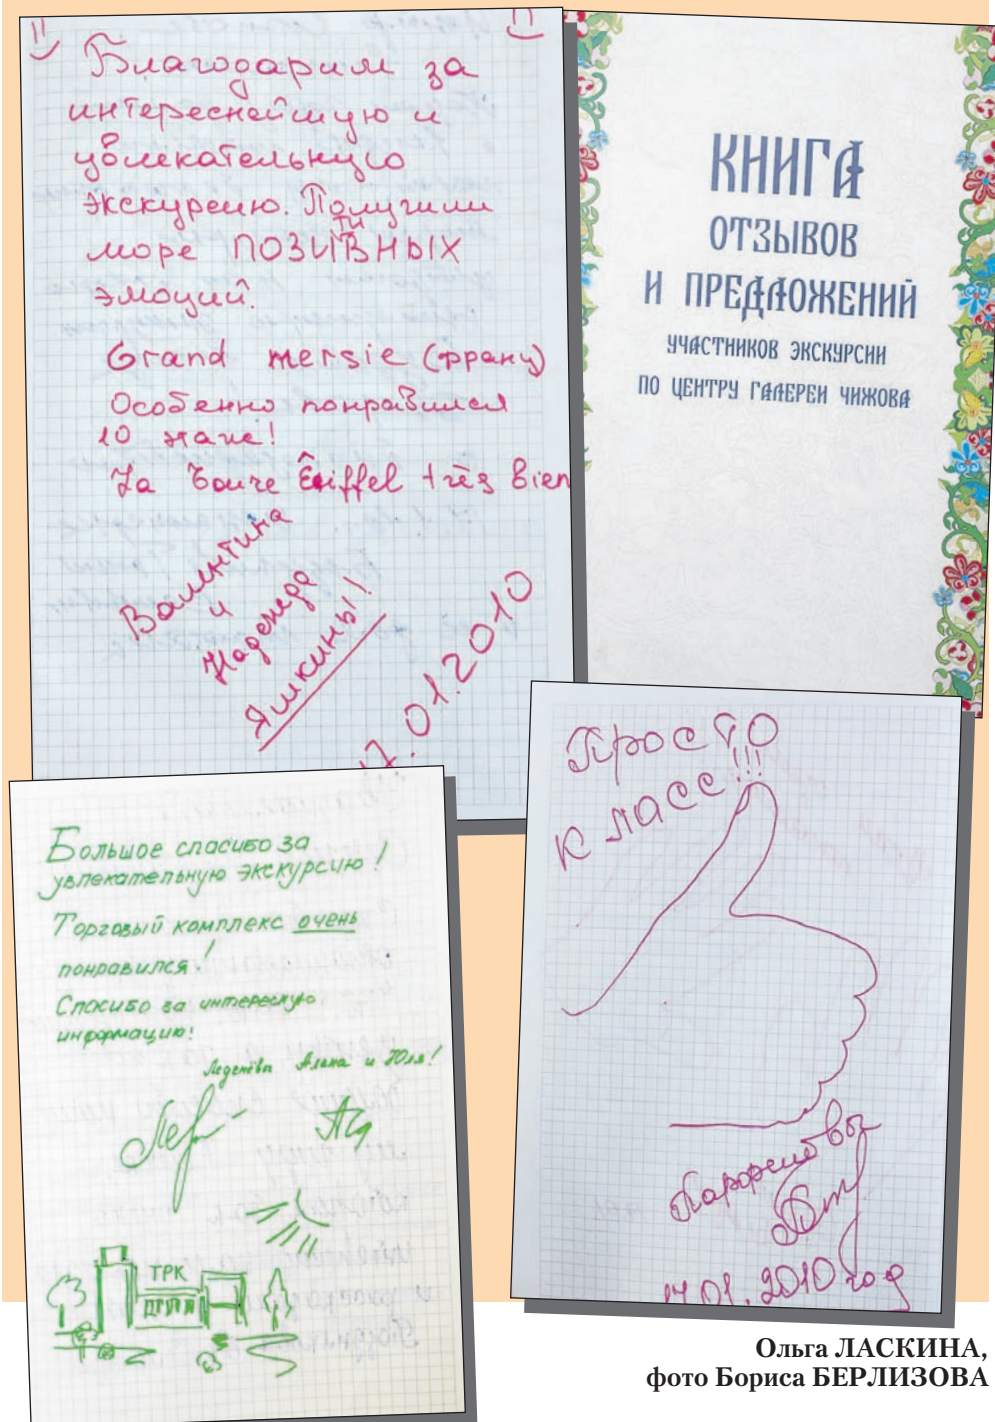 Благодарим за
интереснейшую и
увлекательную
экскурсию. Получили
море ПОЗИТИВНЫХ
эмоций.
Grand mersie (франц)
Особенно понравился
10 этаж!
La Toure Êeiffel très bien
Валентина
и
Надежда
Яшкины!
17.01.2010
КНИГА
ОТЗЫВОВ
И ПРЕДЛОЖЕНИЙ
УЧАСТНИКОВ ЭКСКУРСИИ
ПО ЦЕНТРУ ГАЛЕРЕИ ЧИЖОВА
Большое спасибо за
увлекательную экскурсию!
Торговый комплекс очень
понравился!
Спасибо за интересную
информацию!
Алана и Юля!
ТРК
Просто
класс!!!
17.01.2010 год
Ольга ЛАСКИНА,
фото Бориса БЕРЛИЗОВА